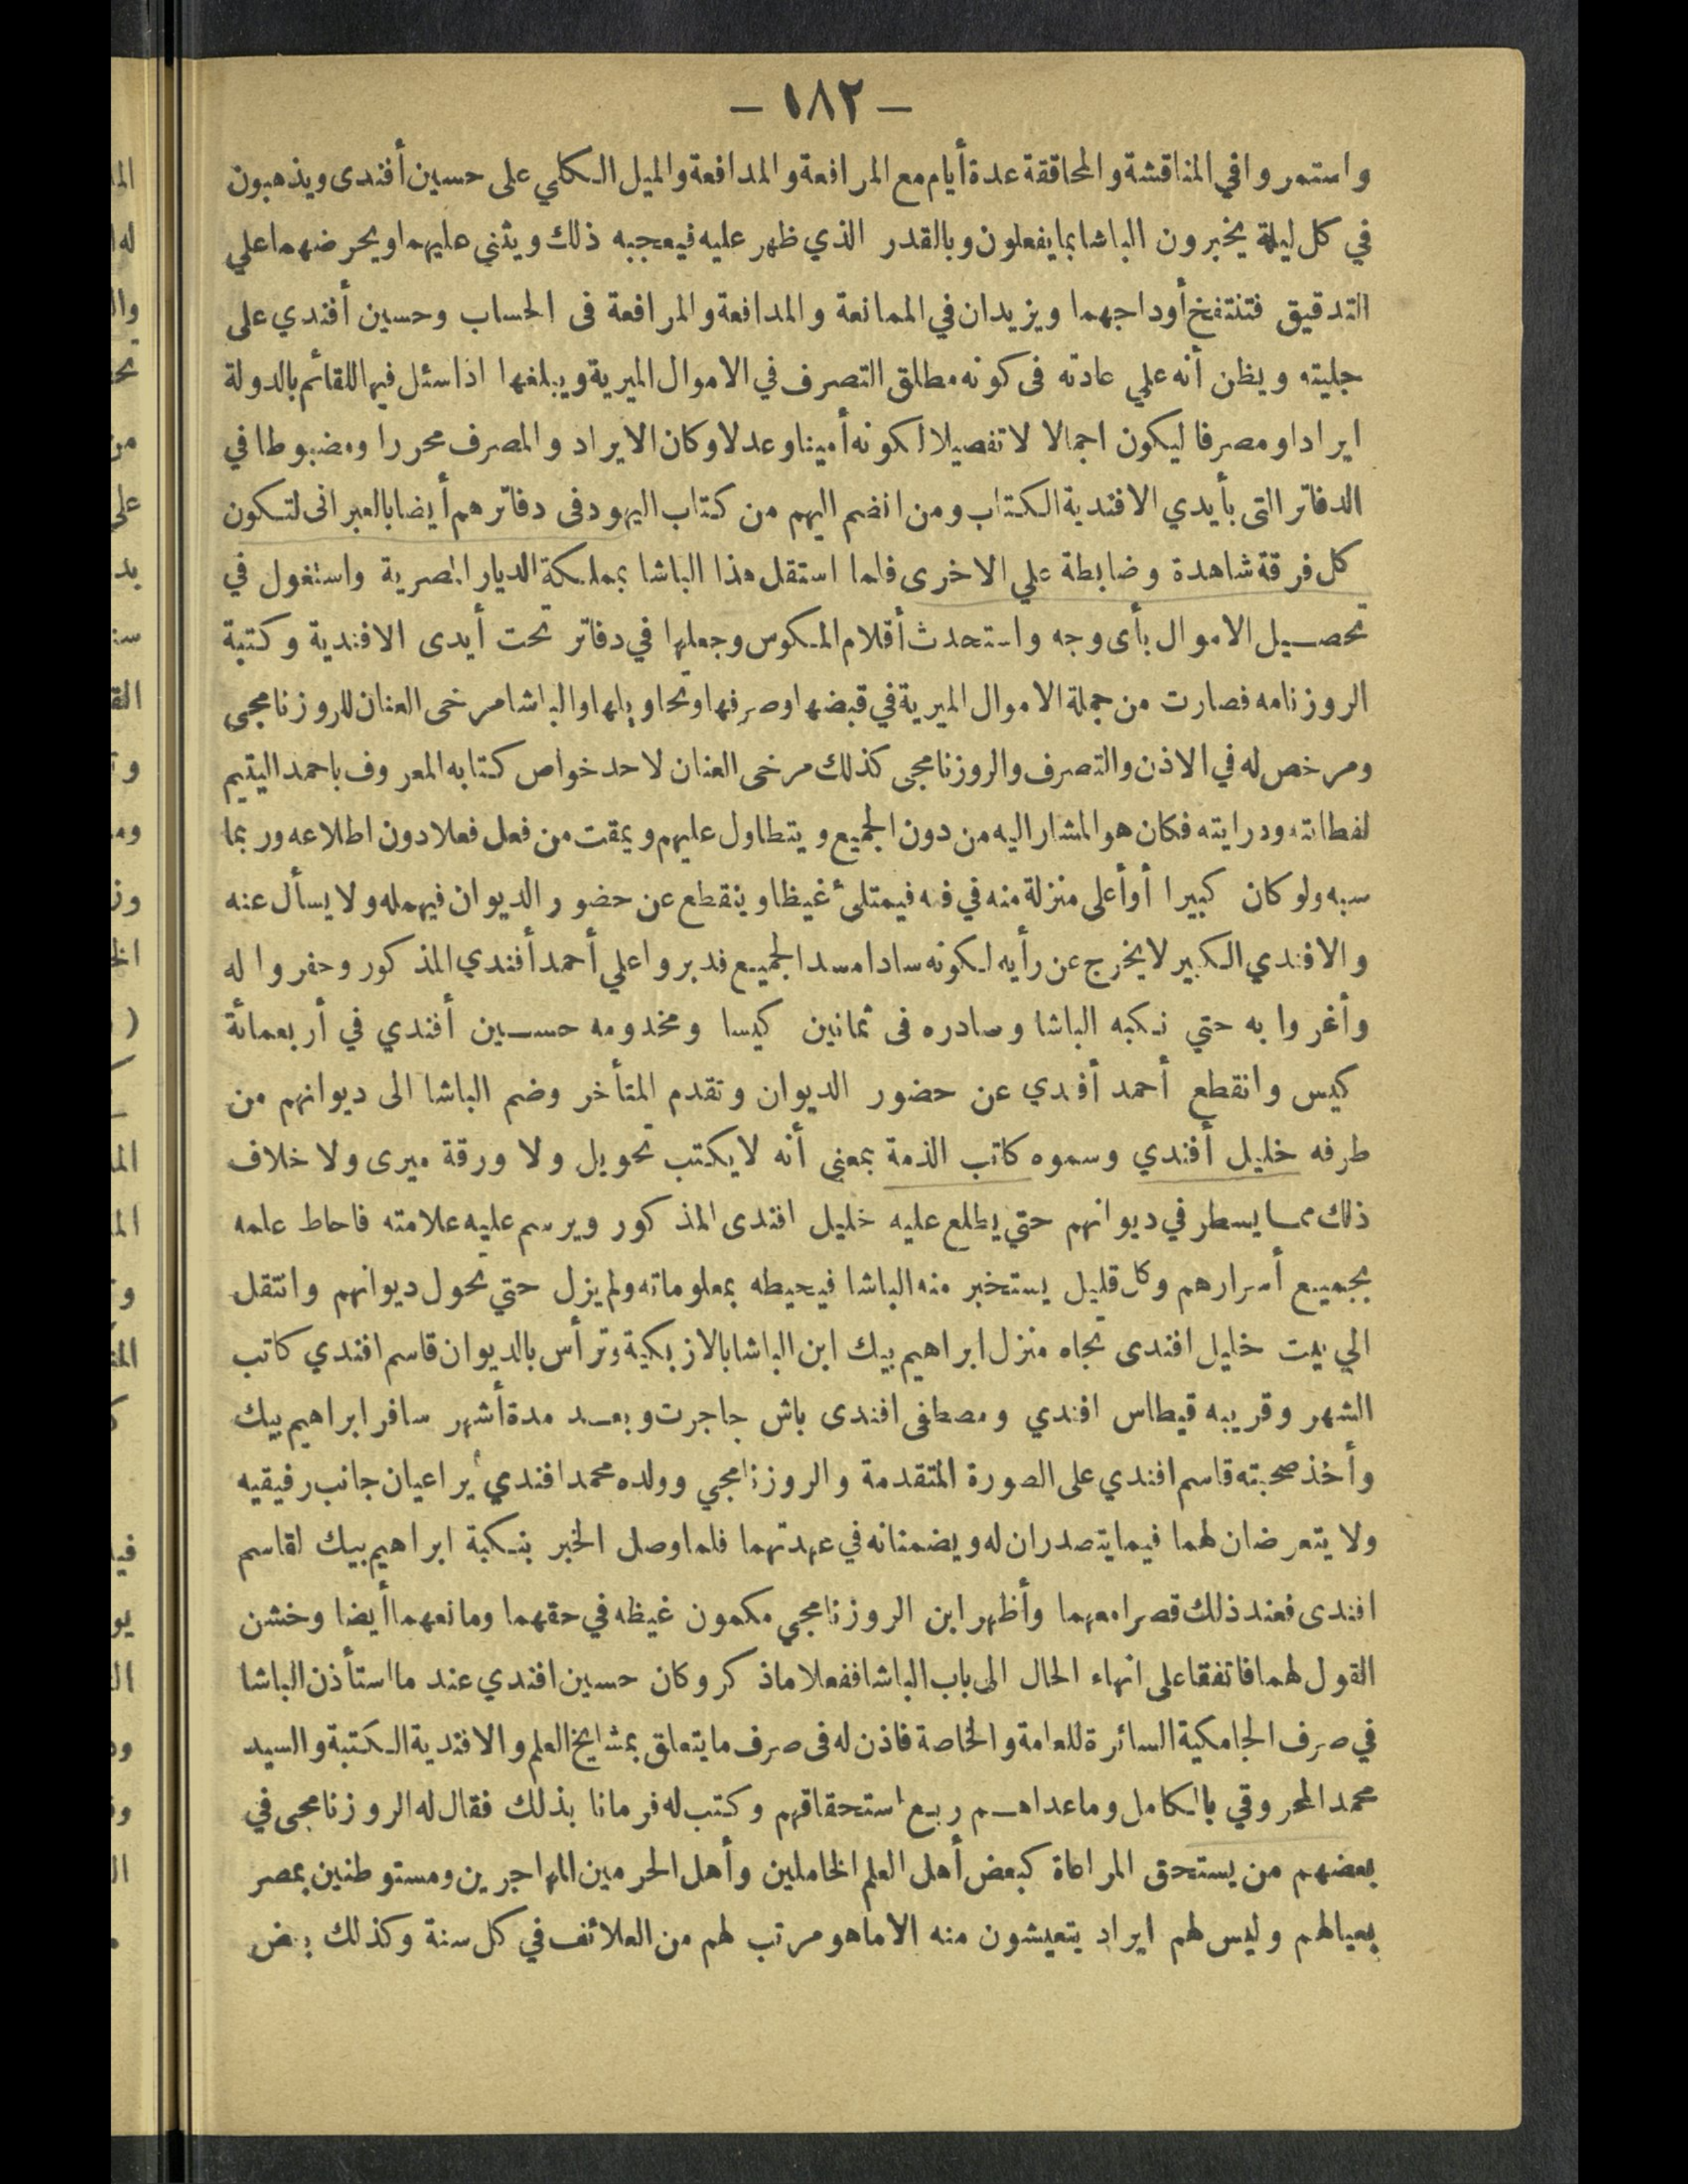 — ١٨٢ —
واستمروا في المناقشة والمحاققة عدة أيام مع المرافعة والمدافعة والميل الكلي على حسين أفندى ويذهبون
في كل ليلة يخبرون الباشا بما يفعلون وبالقدر الذي ظهر عليه فيعجبه ذلك ويثني عليهما ويحرضهما علي
التدقيق فتنتفخ أوداجهما ويزيدان في الممانعة والمدافعة والمرافعة فى الحساب وحسين أفندي على
جليته ويظن أنه علي عادته فى كونه مطلق التصرف في الاموال الميرية ويبلغها اذا سئل فيها للقائم بالدولة
ايرادا ومصرفا ليكون اجمالا لا تفصيلا لكونه أمينا وعدلا وكان الايراد والمصرف محررا ومضبوطا في
الدفاتر التى بأيدي الافندية الكتاب ومن انضم اليهم من كتاب اليهود فى دفاترهم أيضا بالعبرانى لتكون
كل فرقة شاهدة وضابطة علي الاخرى فلما استقل هذا الباشا بمملكة الديار المصرية واستغول في
تحصيل الاموال بأى وجه واستحدث أقلام المكوس وجعلها في دفاتر تحت أيدى الافندية وكتبة
الروزنامه فصارت من جملة الاموال الميرية في قبضها وصرفها وتحاويلها والباشا مرخى العنان للروزنامجي
ومرخص له في الاذن والتصرف والروزنامجى كذلك مرخى العنان لاحد خواص كتابه المعروف باحمد اليتيم
لفطانته ودرايته فكان هو المشار اليه من دون الجميع ويتطاول عليهم ويمقت من فعل فعلا دون اطلاعه وربما
سبه ولو كان كبيرا أو أعلى منزلة منه في فنه فيمتلئ غيظا وينقطع عن حضور الديوان فيهمله ولا يسأل عنه
والافندي الكبير لا يخرج عن رأيه لكونه سادا مسد الجميع فدبروا علي أحمد أفندي المذكور وحفروا له
وأغروا به حتي نكبه الباشا وصادره فى ثمانين كيسا ومخدومه حسين أفندي في أربعمائة
كيس وانقطع أحمد أفندي عن حضور الديوان وتقدم المتأخر وضم الباشا الى ديوانهم من
طرفه خليل أفندي وسموه كاتب الذمة بمعني أنه لا يكتب تحويل ولا ورقة ميرى ولا خلاف
ذلك مما يسطر في ديوانهم حتي يطلع عليه خليل افندى المذكور ويرسم عليه علامته فاحاط علمه
بجميع أسرارهم وكل قليل يستخبر منه الباشا فيحيطه بمعلوماته ولم يزل حتي تحول ديوانهم وانتقل
الي بيت خليل افندى تجاه منزل ابراهيم بيك ابن الباشا بالازبكية وترأس بالديوان قاسم افندي كاتب
الشهر وقريبه قيطاس افندي ومصطفى افندى باش جاجرت وبعد مدة أشهر سافر ابراهيم بيك
وأخذ صحبته قاسم افندي على الصورة المتقدمة والروزنامجي وولده محمد افندي يراعيان جانب رفيقيه
ولا يتعرضان لهما فيما يتصدران له ويضمنانه في عهدتهما فلما وصل الخبر بنكبة ابراهيم بيك لقاسم
افندى فعند ذلك قصرا معهما وأظهر ابن الروزنامجي مكمون غيظه في حقهما ومانعهما أيضا وخشن
القول لهما فاتفقا على انهاء الحال الى باب الباشا ففعلا ما ذكر وكان حسين افندي عند ما استأذن الباشا
في صرف الجامكية السائرة للعامة والخاصة فاذن له فى صرف ما يتعلق بمشايخ العلم والافندية الكتبة والسيد
محمد المحروقي بالكامل وما عداهم ربع استحقاقهم وكتب له فرمانا بذلك فقال له الروزنامجى في
بعضهم من يستحق المراعاة كبعض أهل العلم الخاملين وأهل الحرمين المهاجرين ومستوطنين بمصر
بعيالهم وليس لهم ايراد يتعيشون منه الا ما هو مرتب لهم من العلائف في كل سنة وكذلك بعض